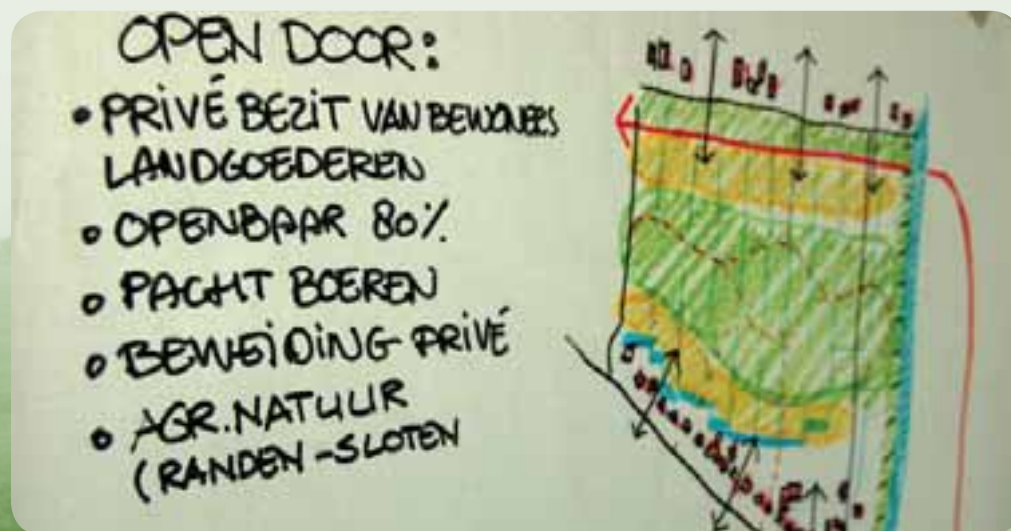 OPEN DOOR:
• PRIVÉ BEZIT VAN BEWONERS
LANDGOEDEREN
• OPENBAAR 80%
• PACHT BOEREN
• BEWEIDING PRIVÉ
• AGR. NATUUR
(RANDEN - SLOTEN